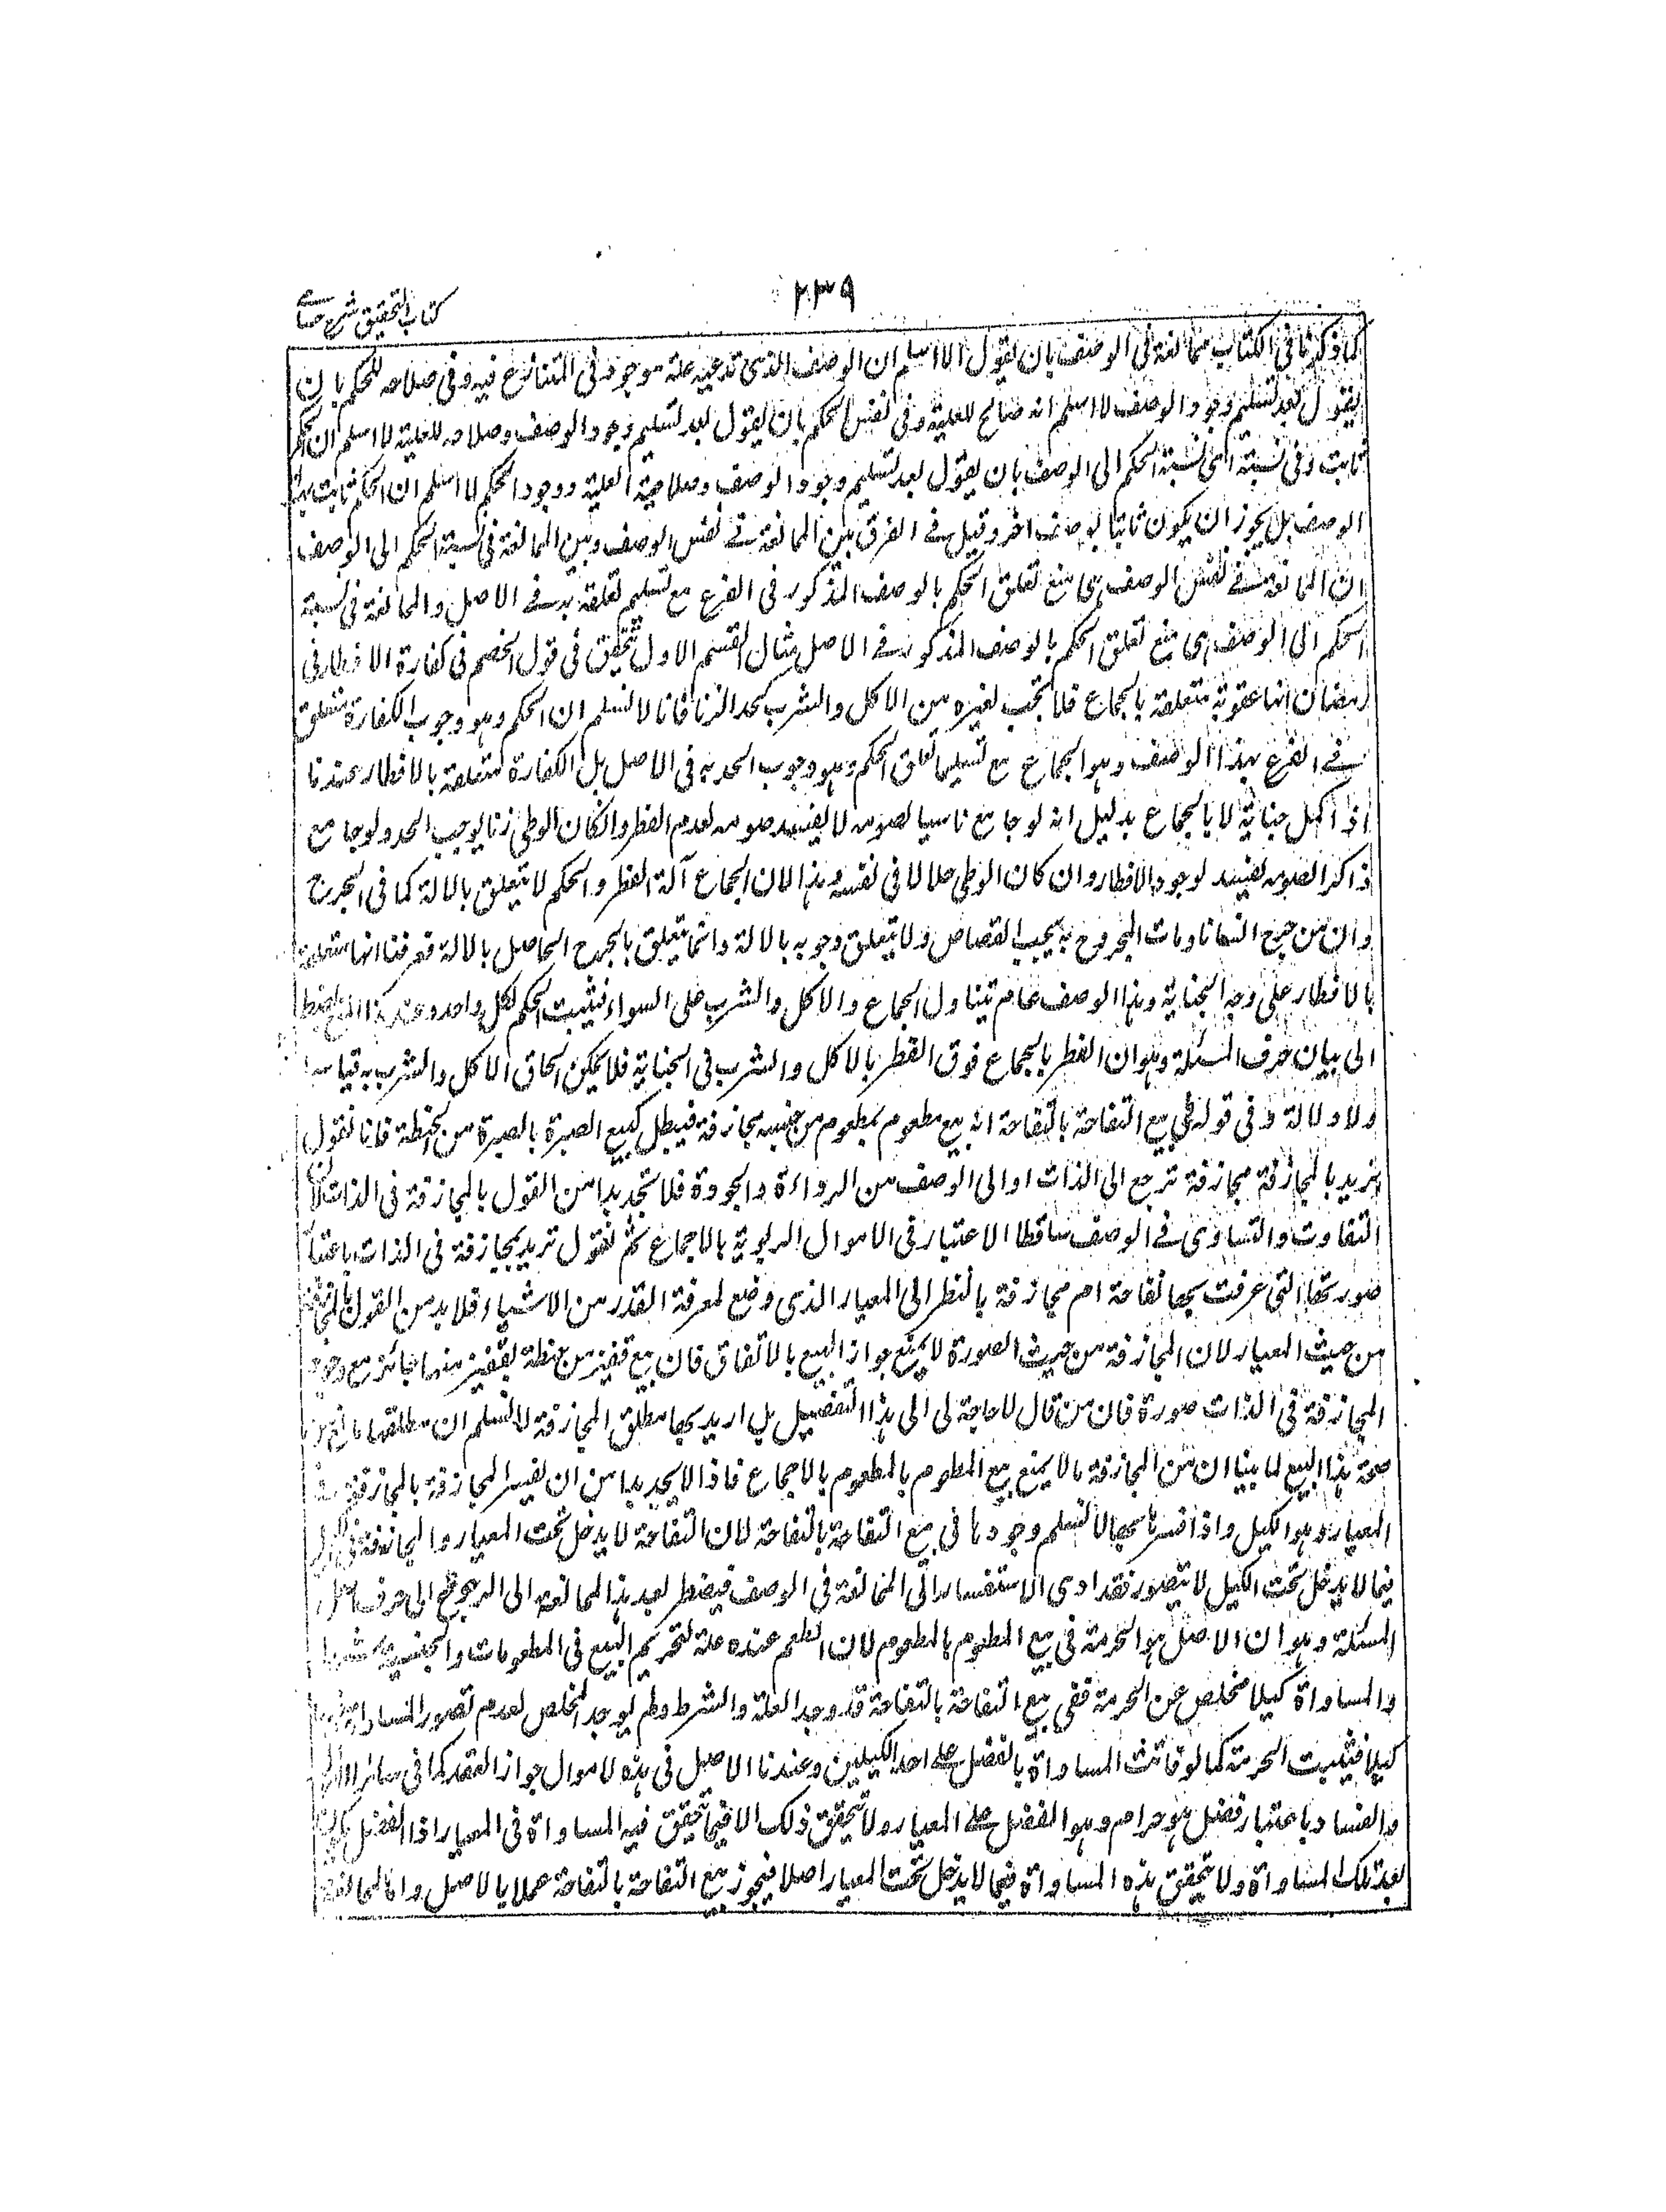 ٢٣٩
كتاب التحقيق شرح حسامي
كما ذكرنا في الكتاب ممانعة في الوصف بان يقول لا اسلم ان الوصف الذي تدعيه علة موجود في المتنازع فيه وفي صلاحه للحكم بان
يقول بعد تسليم وجود الوصف لا اسلم انه صالح للعلية وفي نفس الحكم بان يقول بعد تسليم وجود الوصف وصلاحه للعلية لا اسلم ان الحكم
ثابت وفي نسبته اي نسبة الحكم الى الوصف بان يقول بعد تسليم وجود الوصف وصلاحية العلية ووجود الحكم لا اسلم ان الحكم ثابت بهذا
الوصف بل يجوز ان يكون ثابتا بوصف اخر وقيل في الفرق بين الممانعة في نفس الوصف وبين الممانعة في نسبة الحكم الى الوصف
ان الممانعة في نفس الوصف هي منع تعلق الحكم بالوصف المذكور في الفرع مع تسليم تعلقه به في الاصل والممانعة في نسبة
الحكم الى الوصف هي منع تعلق الحكم بالوصف المذكور في الاصل مثال القسم الاول تتحقق في قول الخصم في كفارة الافطار في
رمضان انها عقوبة متعلقة بالجماع فلا تجب لغيره من الاكل والشرب كحد الزنا فانا لا نسلم ان الحكم وهو وجوب الكفارة متعلق
في الفرع بهذا الوصف وهو الجماع مع تسليم تعلق الحكم وهو وجوب الحد به في الاصل بل الكفارة متعلقة بالافطار عندنا
اذا كمل جناية لا بالجماع بدليل انه لو جامع ناسيا لصومه لا يفسد صومه لعدم الفطر وان كان الوطي زنا يوجب الحد ولو جامع
ذاكرا لصومه يفسد لوجود الافطار وان كان الوطي حلالا في نفسه وهذا لان الجماع آلة الفطر والحكم لا يتعلق بالالة كما في الجرح
وان من جرح انسانا ومات المجروح به يجب القصاص ولا يتعلق وجوبه بالالة وانما يتعلق بالجرح الحاصل بالالة فعرفنا انها متعلقة
بالافطار على وجه الجناية وهذا الوصف عام يتناول الجماع والاكل والشرب على السواء فثبت الحكم لكل واحد وعند هذا المنع يضطر
الى بيان حرف المسئلة وهو ان الفطر بالجماع فوق الفطر بالاكل والشرب في الجناية فلا يمكن الحاق الاكل والشرب به قياسا
ولا دلالة وفي قوله في بيع التفاحة بالتفاحة انه بيع مطعوم بمطعوم من جنسه مجازفة فيبطل كبيع الصبرة بالصبرة من الحنطة فانا نقول
تريد بالمجازفة مجازفة ترجع الى الذات او الى الوصف من الرداءة والجودة فلا تجد بدا من القول بالمجازفة في الذات لان
التفاوت والتساوي في الوصف ساقطا الاعتبار في الاموال الربوية بالاجماع ثم نقول تريد بمجازفة في الذات باعتبار
صورتها التي عرفت بها تفاحة ام مجازفة بالنظر الى المعيار الذي وضع لمعرفة القدر من الاشياء فلا بد من القول بالمجازفة
من حيث المعيار لان المجازفة من حيث الصورة لا يمنع جواز البيع بالاتفاق فان بيع قفيز من حنطة بقفيز منها جائز مع وجود
المجازفة في الذات صورة فان من قال لا حاجة لي الى هذا التفصيل بل اريد بها مطلق المجازفة لا نسلم ان مطلقها مانع من
صحة هذا البيع لما بينا ان من المجازفة ما لا يمنع بيع المطعوم بالمطعوم بالاجماع فاذا لا يجد بدا من ان يفسر المجازفة بالمجازفة في
المعيار وهو الكيل واذا فسرنا بها لا نسلم وجودها في بيع التفاحة بالتفاحة لان التفاحة لا يدخل تحت المعيار والمجازفة في الكيل
فيما لا يدخل تحت الكيل لا يتصور فقد ادى الاستفسار الى الممانعة في الوصف فيضطر بعد هذا الممانعه الى الرجوع الى حرف
المسئلة وهو ان الاصل هو الحرمة في بيع المطعوم بالمطعوم لان الطعم عنده علة لتحريم البيع في المطعومات والجنسية شرط
والمساواة كيلا مخلص عن الحرمة ففي بيع التفاحة بالتفاحة قد وجد العلة والشرط ولم يوجد المخلص لعدم تصور المساواة
كيلا فثبت الحرمة كما لو فاتت المساواة بالفضل على احد الكيلين وعندنا الاصل في هذه الاموال جواز العقد كما في سائر الاموال
والفساد باعتبار فضل هو حرام وهو الفضل على المعيار ولا تتحقق ذلك الا فيما تحقق فيه المساواة في المعيار اذا الفضل يكون
بعد تلك المساواة ولا تتحقق هذه المساواة فيما لا يدخل تحت المعيار اصلا فيجوز بيع التفاحة بالتفاحة عملا بالاصل واما الممانعة